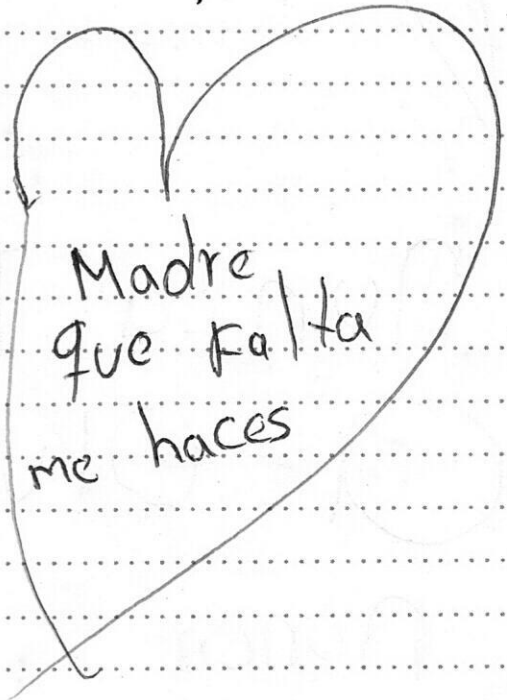 Madre
que Falta
me haces